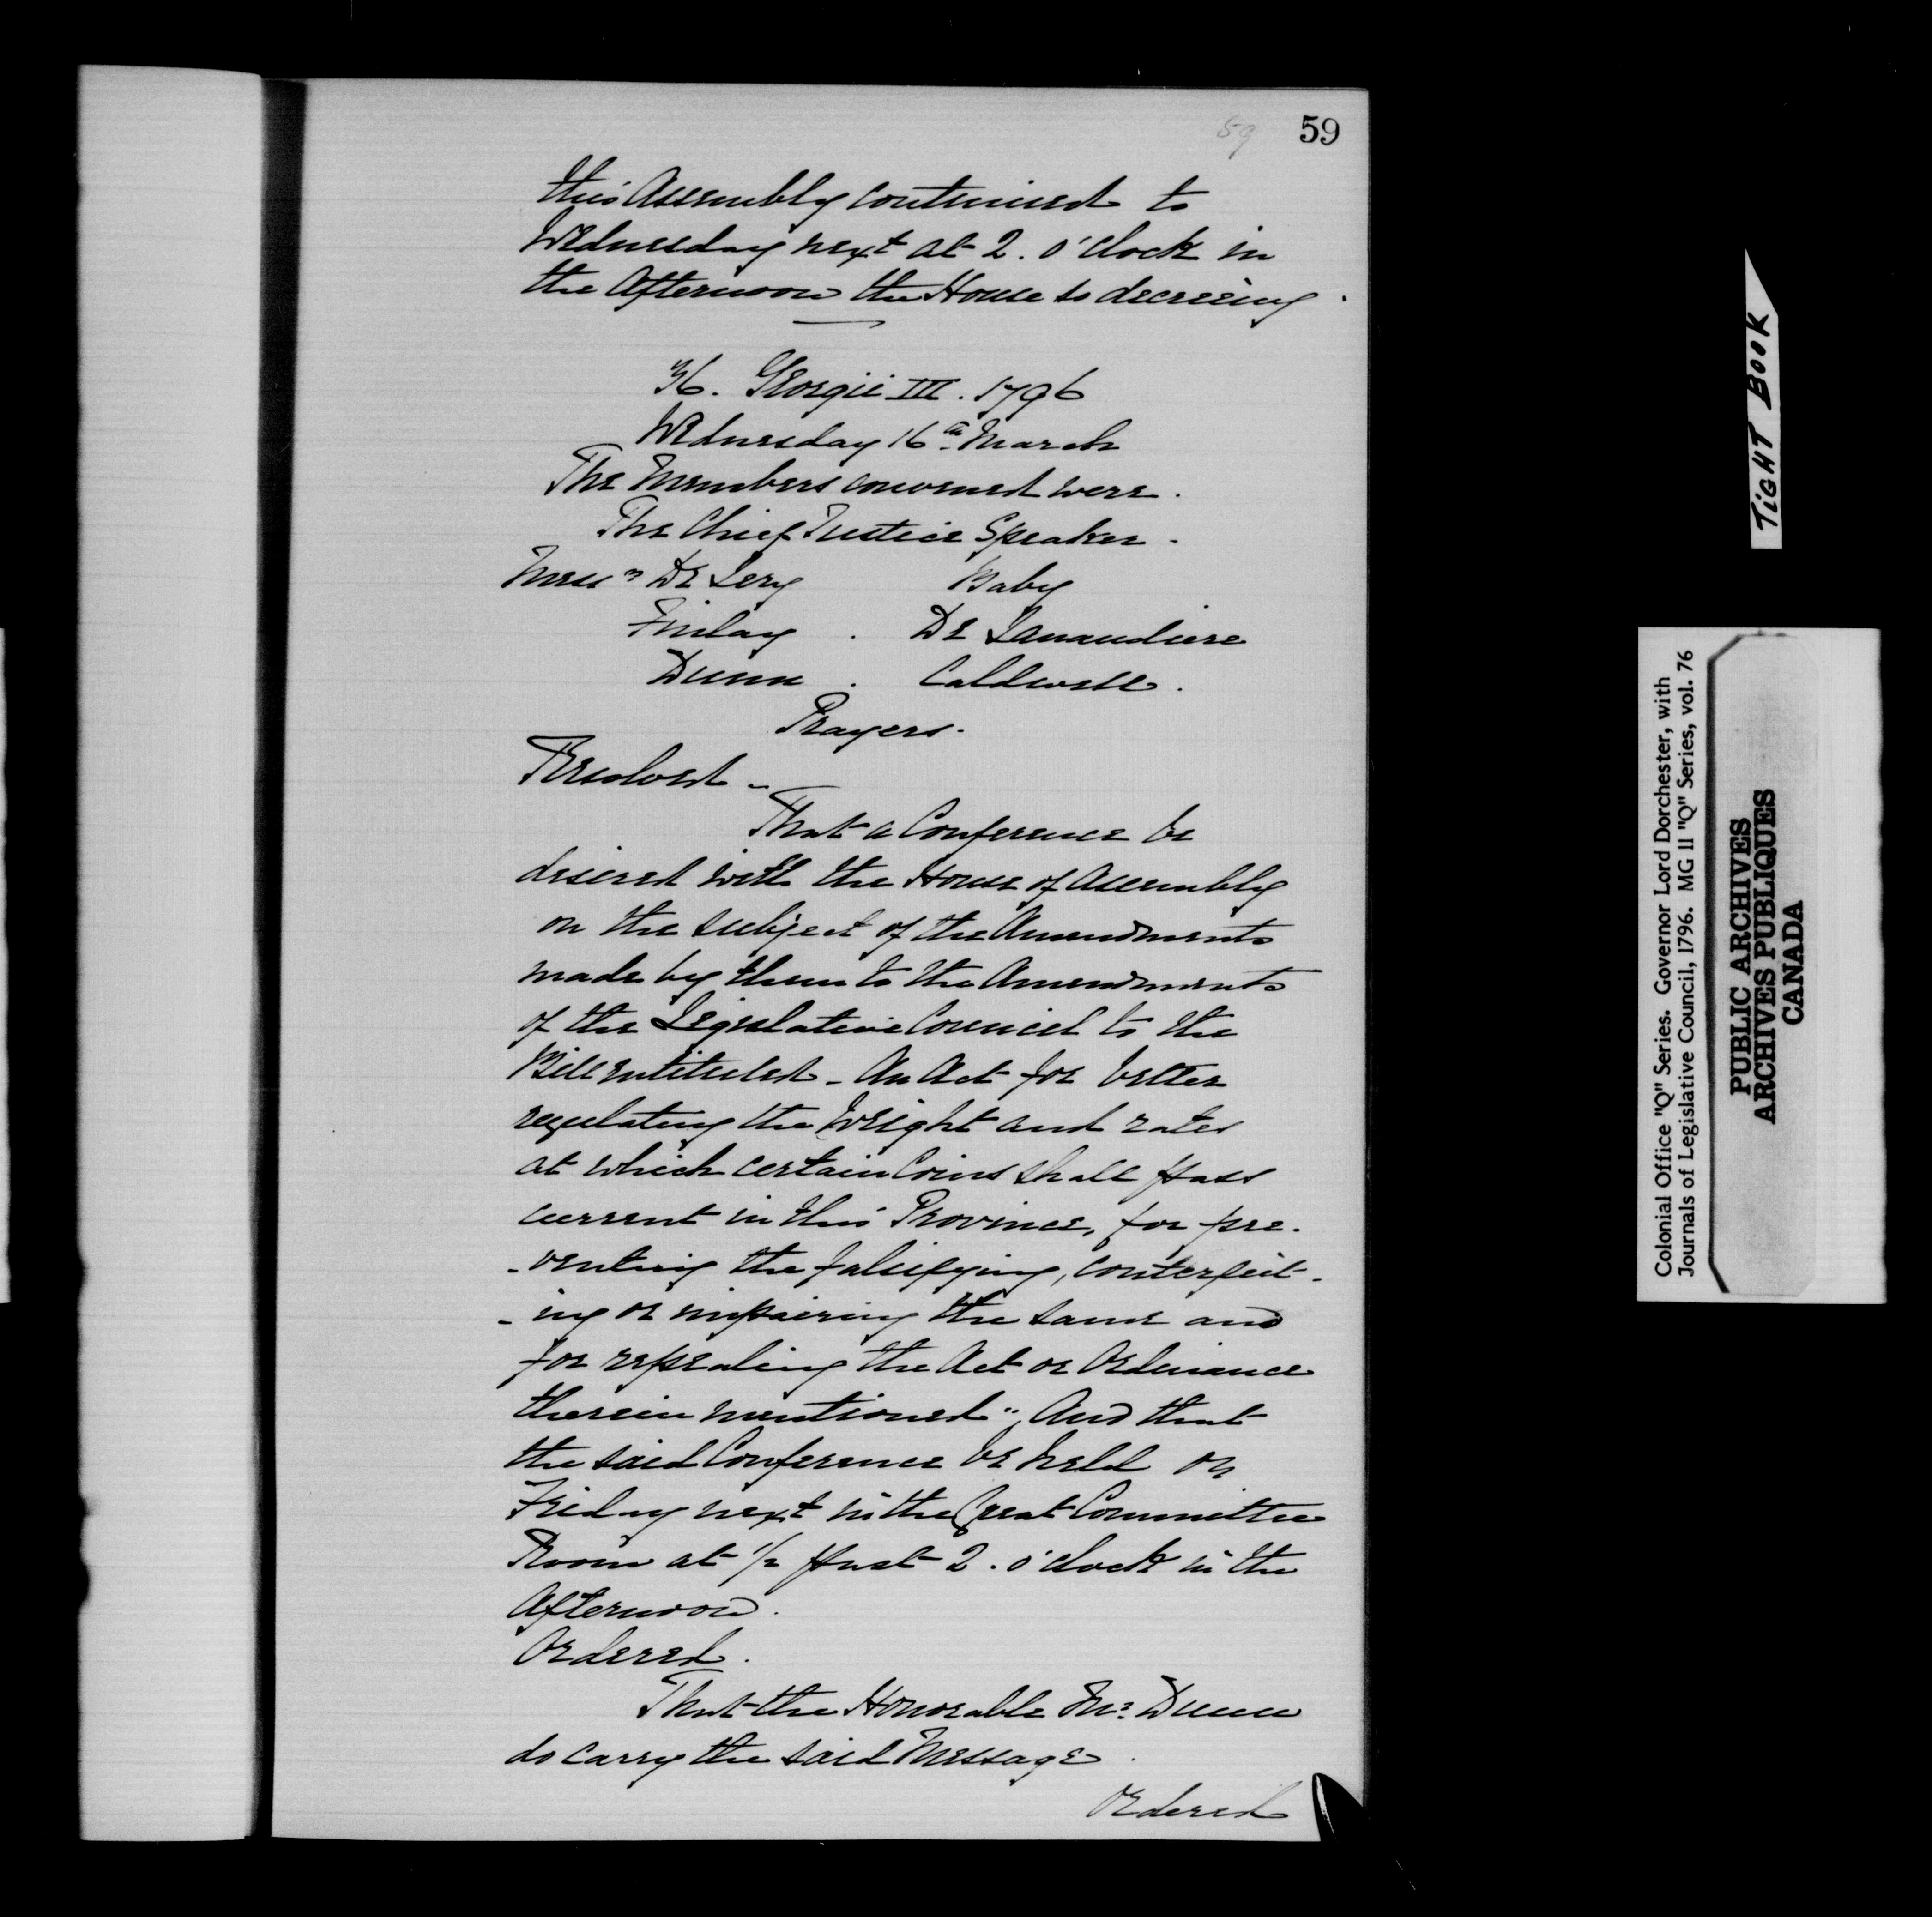 59 59
this Assembly continued to
Wednesday next at 2. o'clock in
the Afternoon the House so decreeing.
36. Georgii III. 1796
Wednesday 16th March
The Members convened were.
The Chief Justice Speaker.
Messrs De Lery Baby
Finlay . De Lanaudiere
Dunn . Caldwell.
Prayers.
Resolved -
That a Conference be
desired with the House of Assembly
on the subject of the Amendments
made by them to the Amendments
of the Legislative Council to the
Bill entituled - An Act for better
regulating the Weight and rates
at which certain Coins shall pass
current in this Province, for pre-
-venting the falsifying, counterfeit-
-ing or impairing the same and
for repealing the Act or Ordinance
therein mentioned", And that
the said Conference be held on
Friday next in the Great Committee
Room at 1/2 past 2. o'clock in the
Afternoon.
Ordered.
That the Honorable Mr. Dunn
do carry the said Message.
Ordered
TIGHT BOOK
Colonial Office "Q" Series. Governor Lord Dorchester, with
Journals of Legislative Council, 1796. MG 11 "Q" Series, vol. 76
PUBLIC ARCHIVES
ARCHIVES PUBLIQUES
CANADA